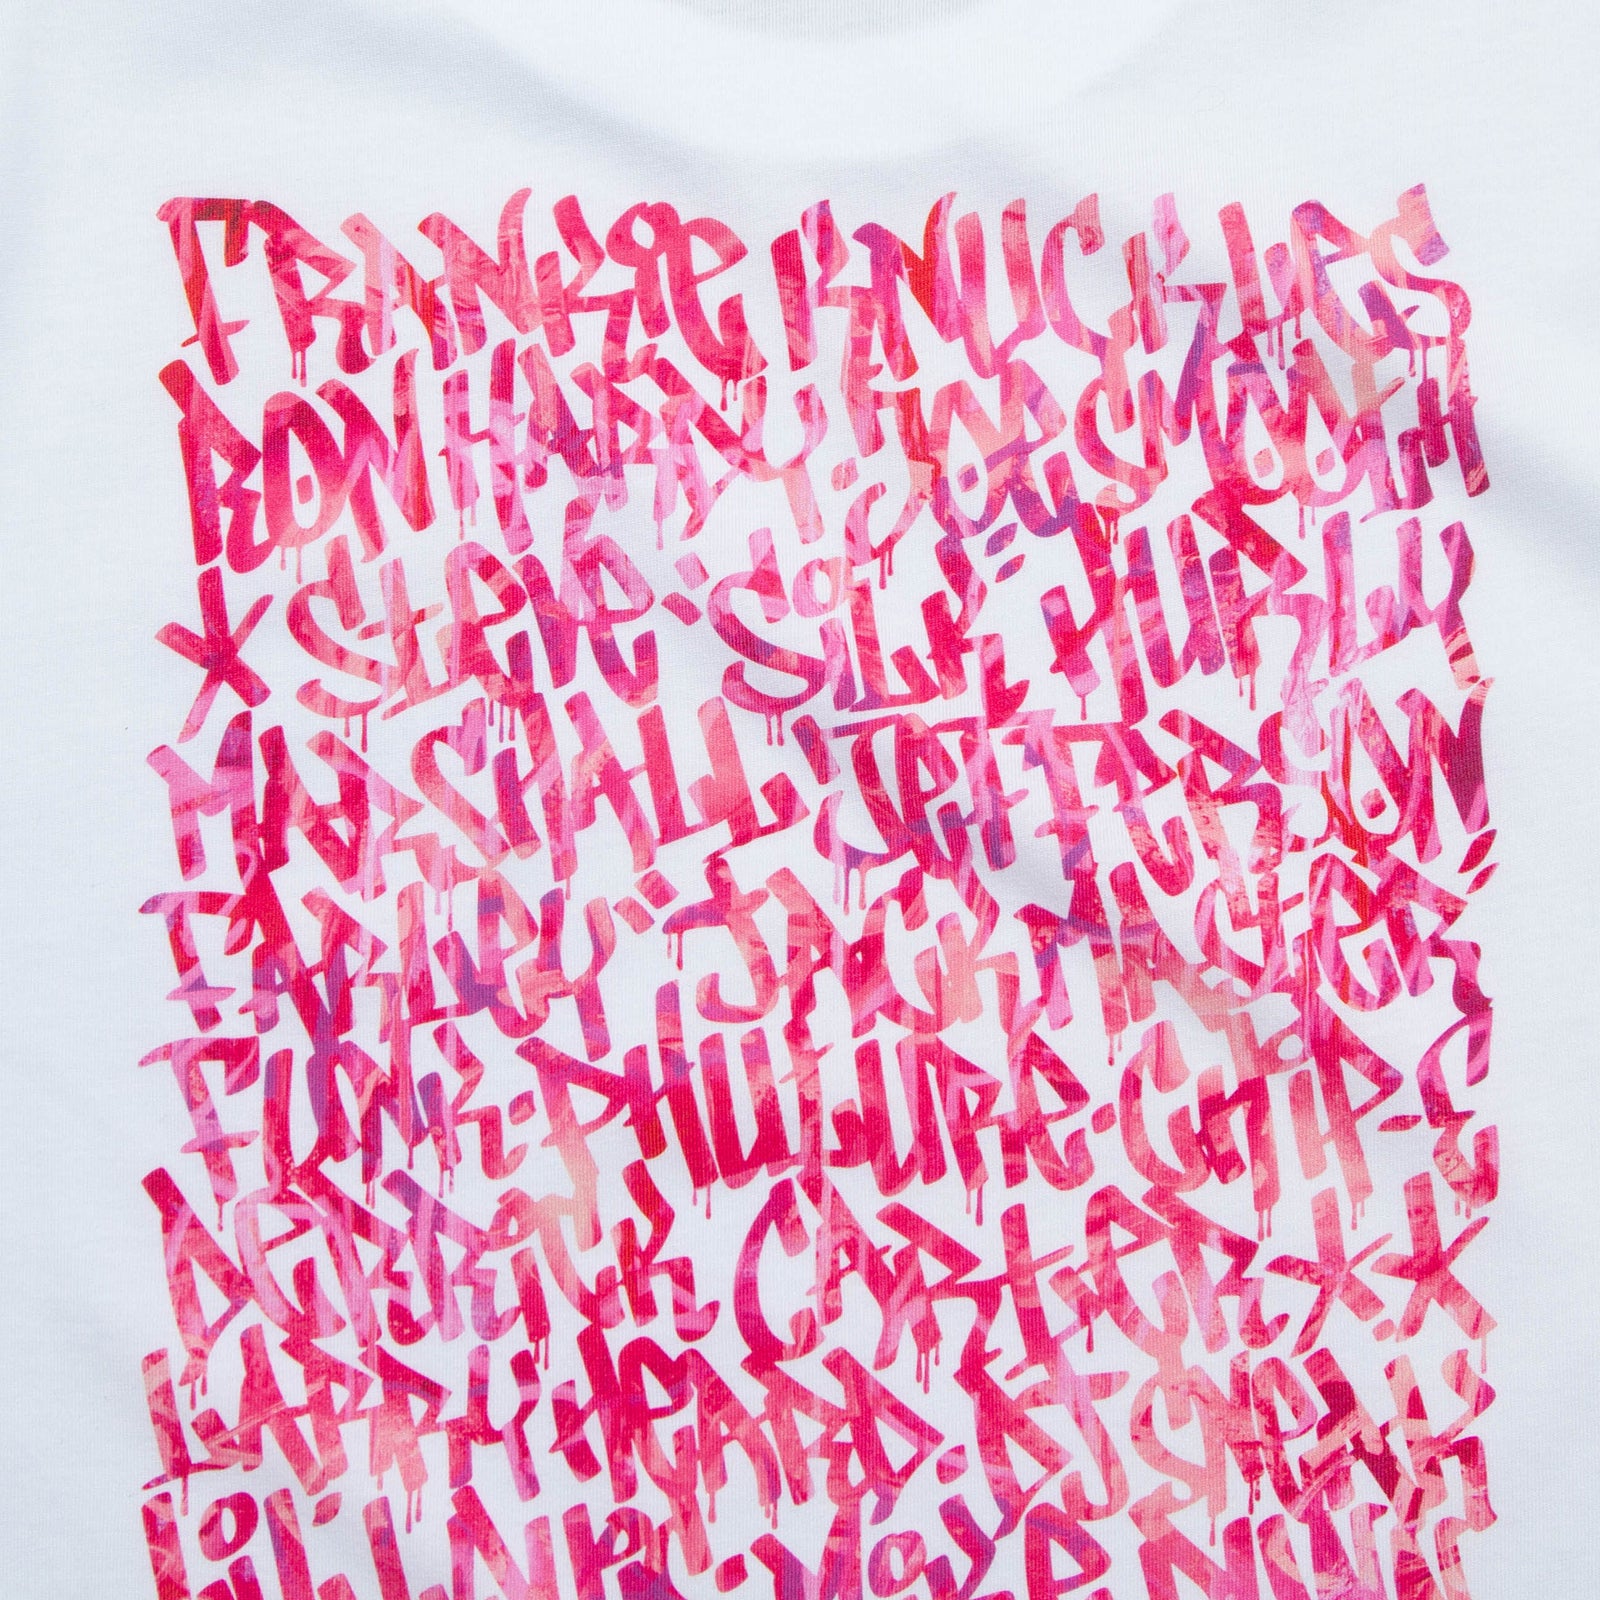 FRANKIE KNUCKLES
RON HARDY · JOE SMOOTH
* STEVE "SILK" HURLEY
MARSHALL JEFFERSON
FARLEY "JACKMASTER"
FUNK · PHUTURE · CHIP-E
DERRICK CARTER **
LARRY HEARD · DJ SNEAK